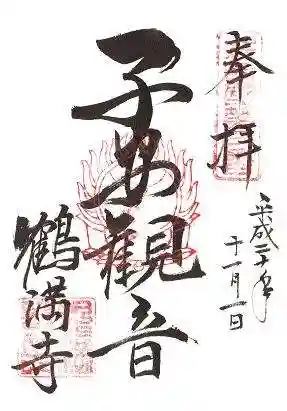 奉拝
平成二十年
十一月一日
子安観音
鶴満寺